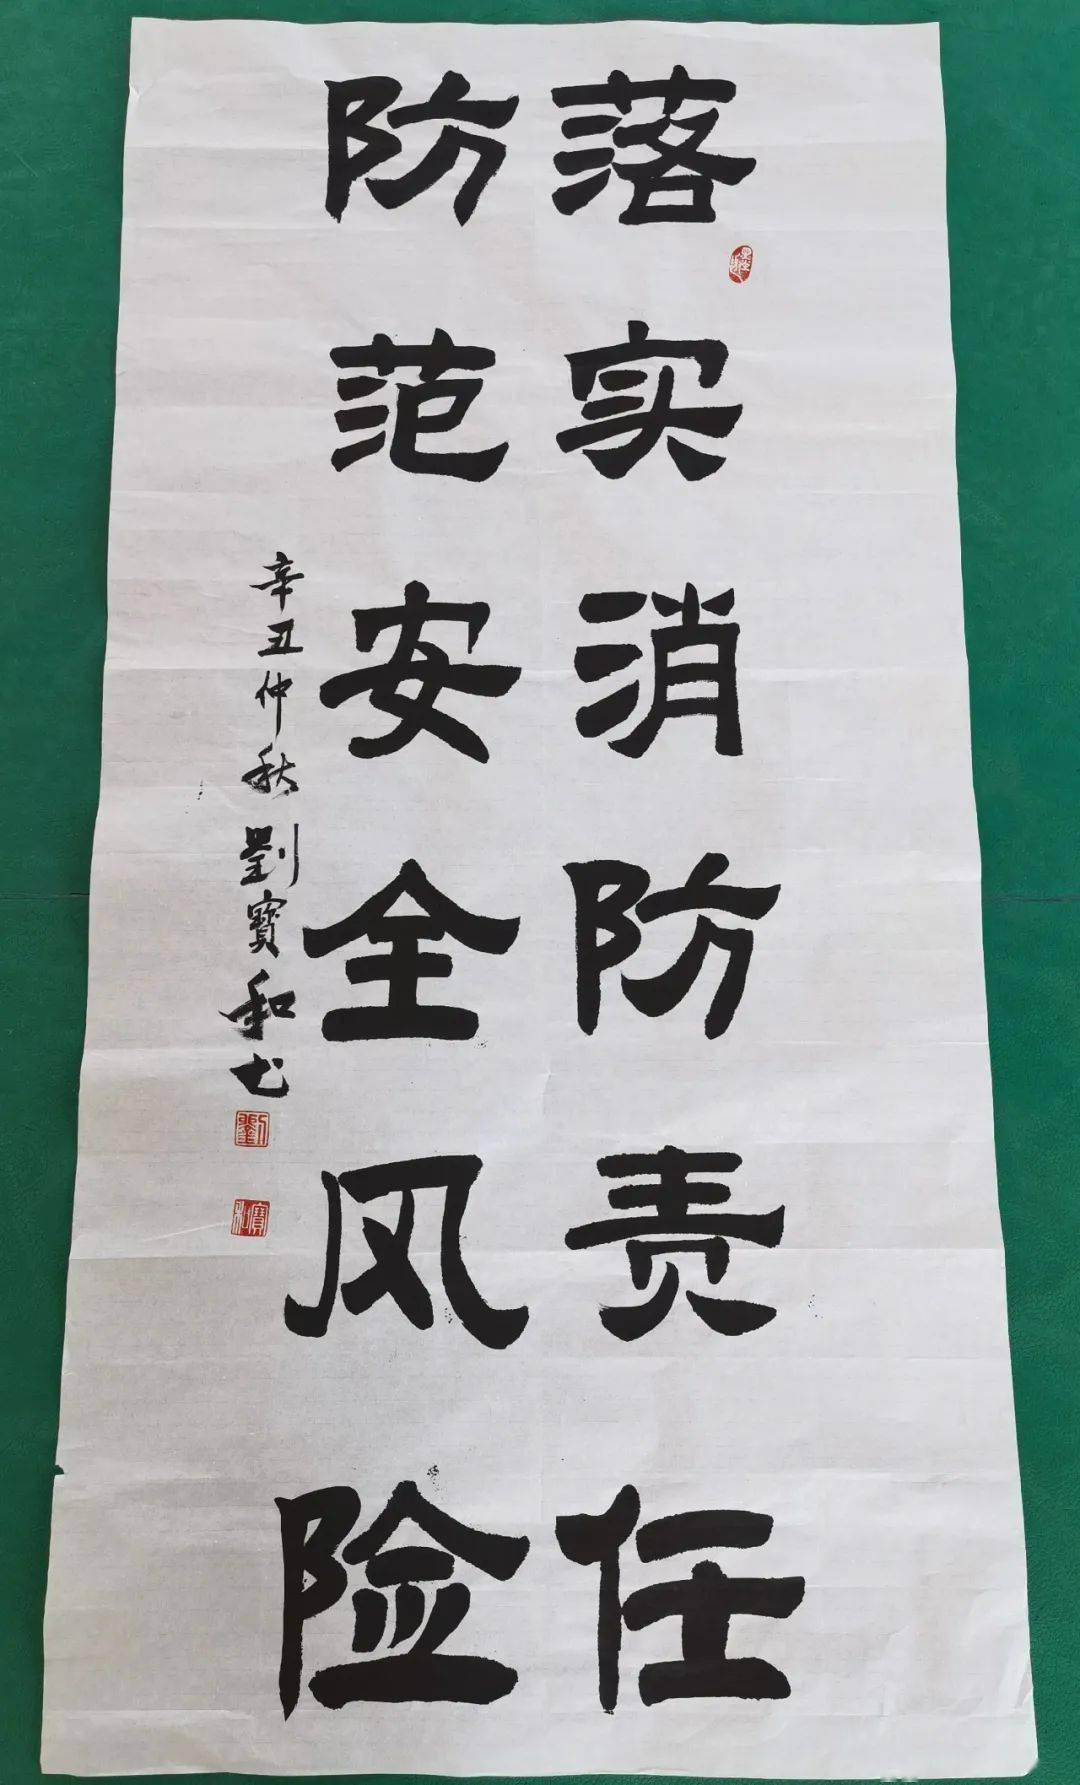 落实消防责任
防范安全风险
辛丑仲秋劉寶和书
劉
寶和